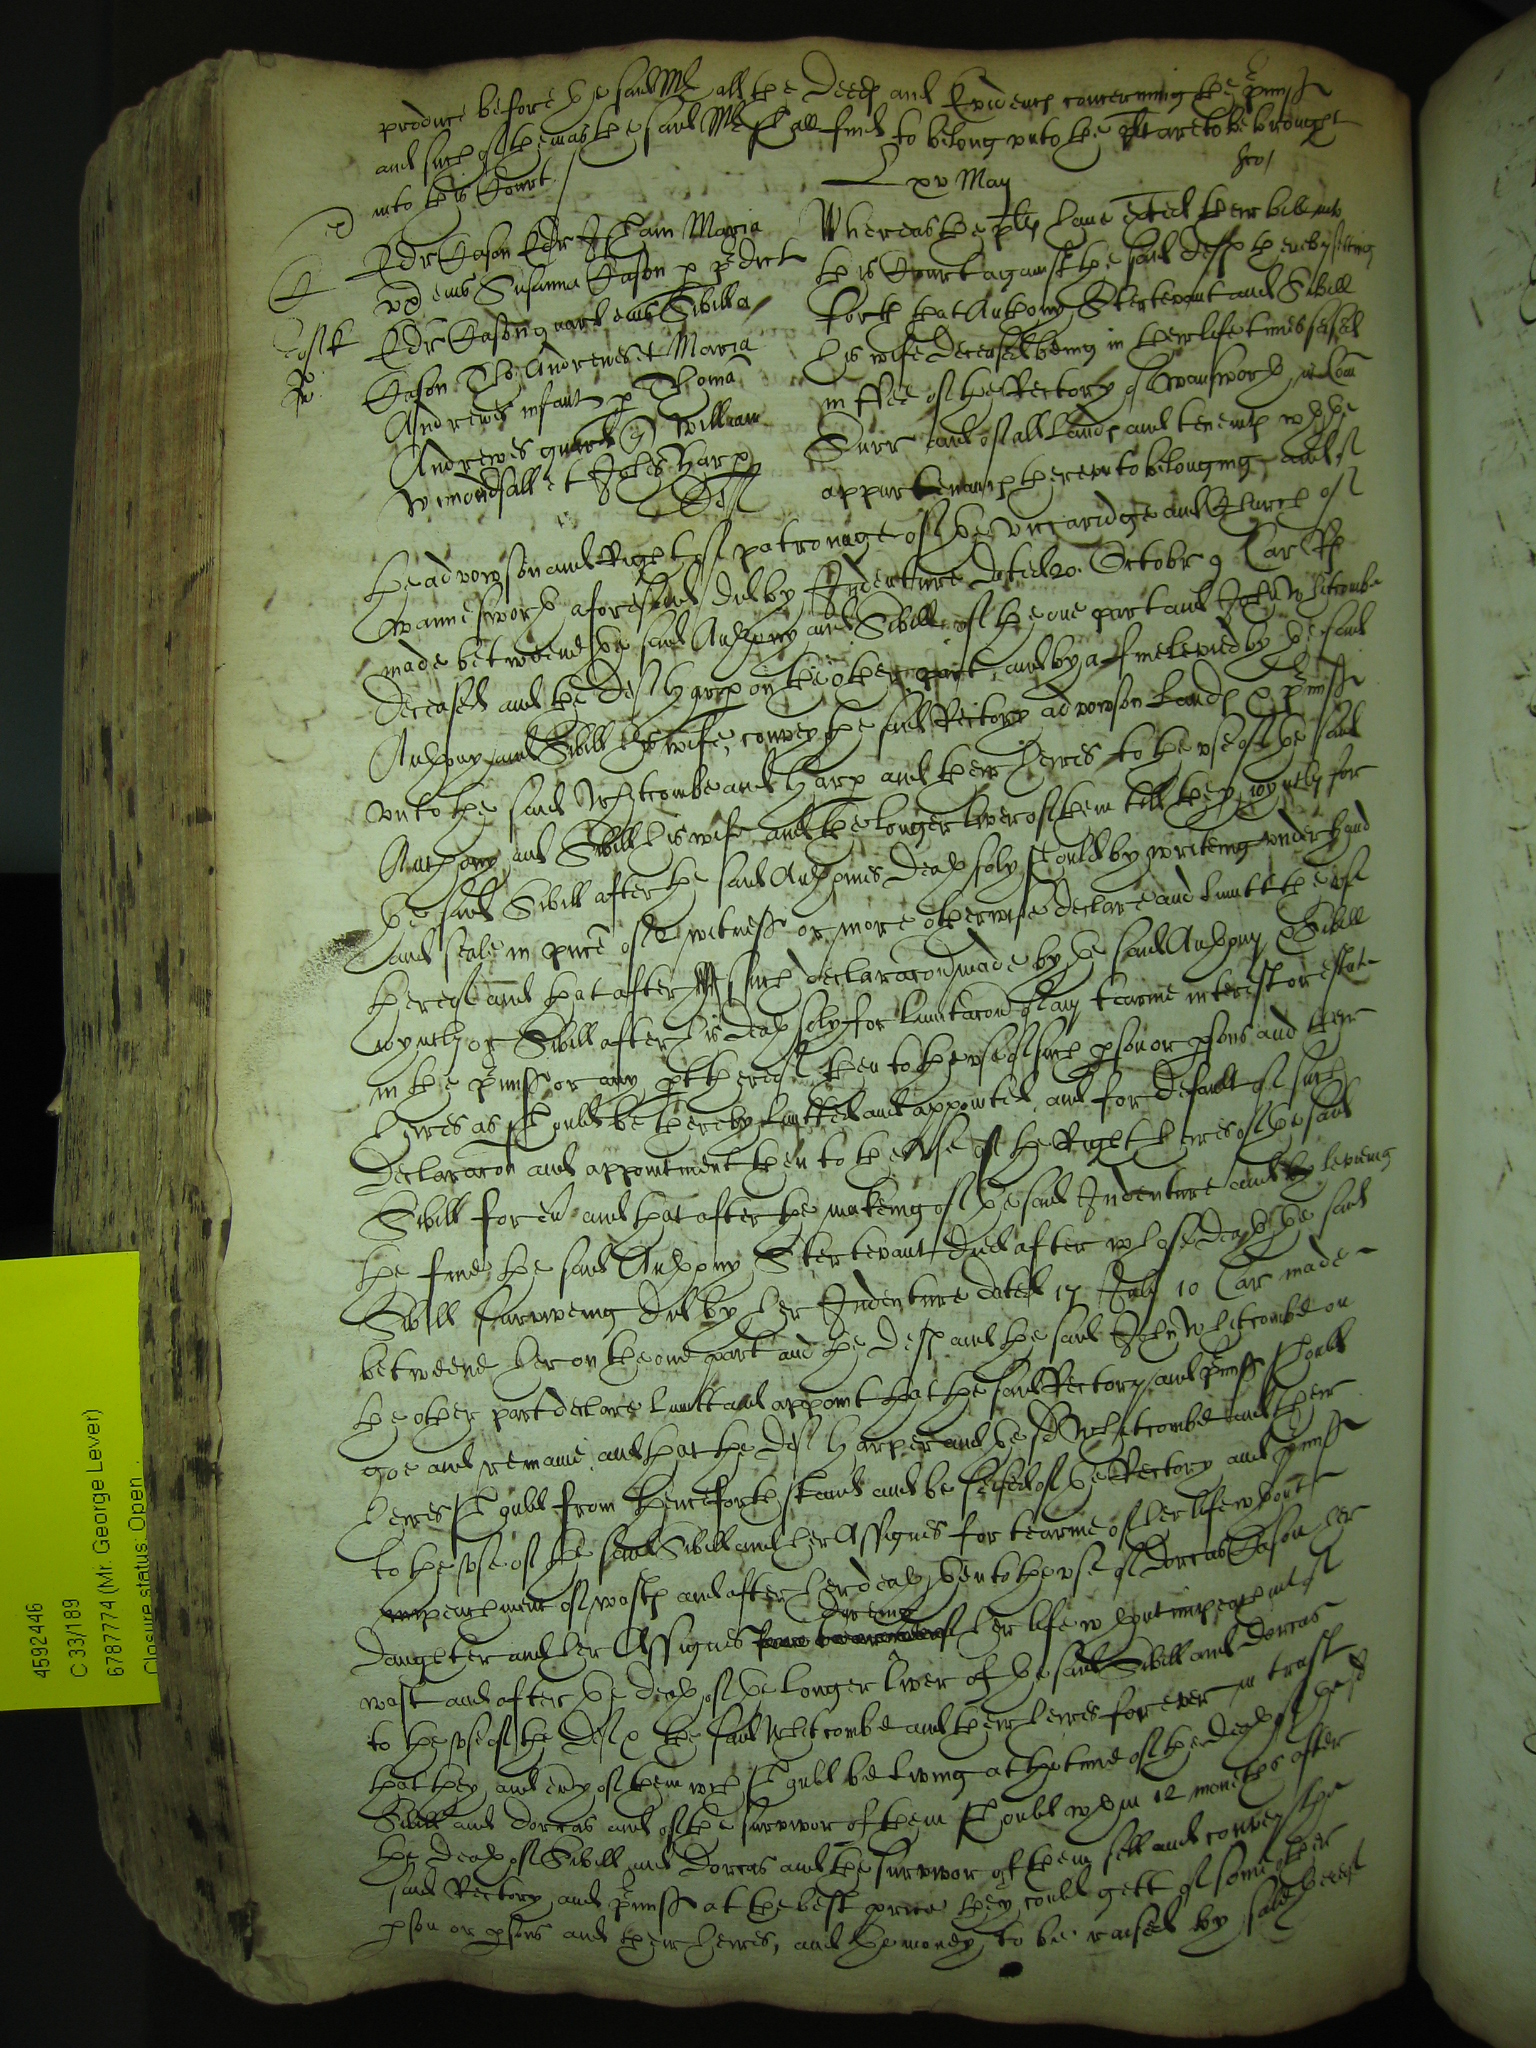 produce before the said Mr all the Deeds and Evidences concerning the p̃miss
and such of them as the said Mr shall find to belong unto the plt are to be brought
into this Court
xv May
Edr Cason Edr Isham Maria
ux eius Susanna Cason p p̃dict
Edr Cason guard eius Sibilla
Cason Tho: Andrewes et Maria
Andrewes infant p Thomã
Andrewes guard William
Wimondsall et Johes Harp
Def
Whereas the plts have exhited their bill into
this Court against the said Deft thereby setting
forth that Anthony Stertevant and Sibill
his wife deceased being in their life times seised
in ffee of the Rectory of Wansworth in Com
Surr and of all Lands and tenemts wth the
appurtenancs thereunto belonging and of
the advowson and Right of patronage of the viccaridge and Church of
Wannesworth aforesaid did by Indenture dated 20 Octobr 9 Car Rs
made betweene the said Anthony and Sibill of the one part and John Whitcombe
deceased and the Deft Harp on the other part, and by a fine levied by the said
Anthony and Sibill his wife, convey the said Rectory advowson Lands & p̃miss
unto the said Whitcombe and Harp and their heires to the use of the said
Anthony and Sibill his wife and the longer liver of them till they joyntly for
the said Sibill after the said Anthonies death soly should by writeing under hand
and seale in p̃nce of 2 witness or more otherwise declare and limitt the use
thereof and that after such declaracon made by the said Anthony & Sibill
joyntly or Sibill after his death soly for limitacon of any tearme interest or estate
in the p̃miss or any pt thereof then to the use of such pson or psons and their
heires as should be thereby limitted and appointed and for default of such
declaracon and appointment then to the use of the Right heires of the said
Sibill for eu and that after the makeing of the said Indenture and levieing
the fine the said Anthony Stertevant died after whose death the said
Sibill surviveing did by her Indenture dated 17 July 10 Car made
betweene her on the one part and the Deft and the said John Whitcombe on
the other part declare limitt and appoint that the said Rectory and p̃miss should
goe and remaine, and that the Deft Harper and the sd Whitcombe and their
heires should from thenceforth stand and be seised of the Rectory and p̃miss
to the use of the said Sibill and her Assignes for tearme of her life wthout
impeachment of wast and after her death then to the use of Dorcas Cason her
daughter and her Assignes dureing her life wthout impeachmt of
wast and after the death of the longer liver of the said Sibill and Dorcas
to the use of the Deft & the said Whitcombe and their heires for ever in trust
that they and euy of them wch should be living at the time of the death of the sd
Sibill and Dorcas and of the survivor of them should wthin 12 monethes after
the death of Sibill and Dorcas and the survivor of them sell and convey the
said Rectory and p̃miss at the best price they could gett of some other
pson or psons and their heires, and the money to be raised by sale thereof
4592446
C 33/189
6787774 (Mr. George Lever)
Closure status: Open